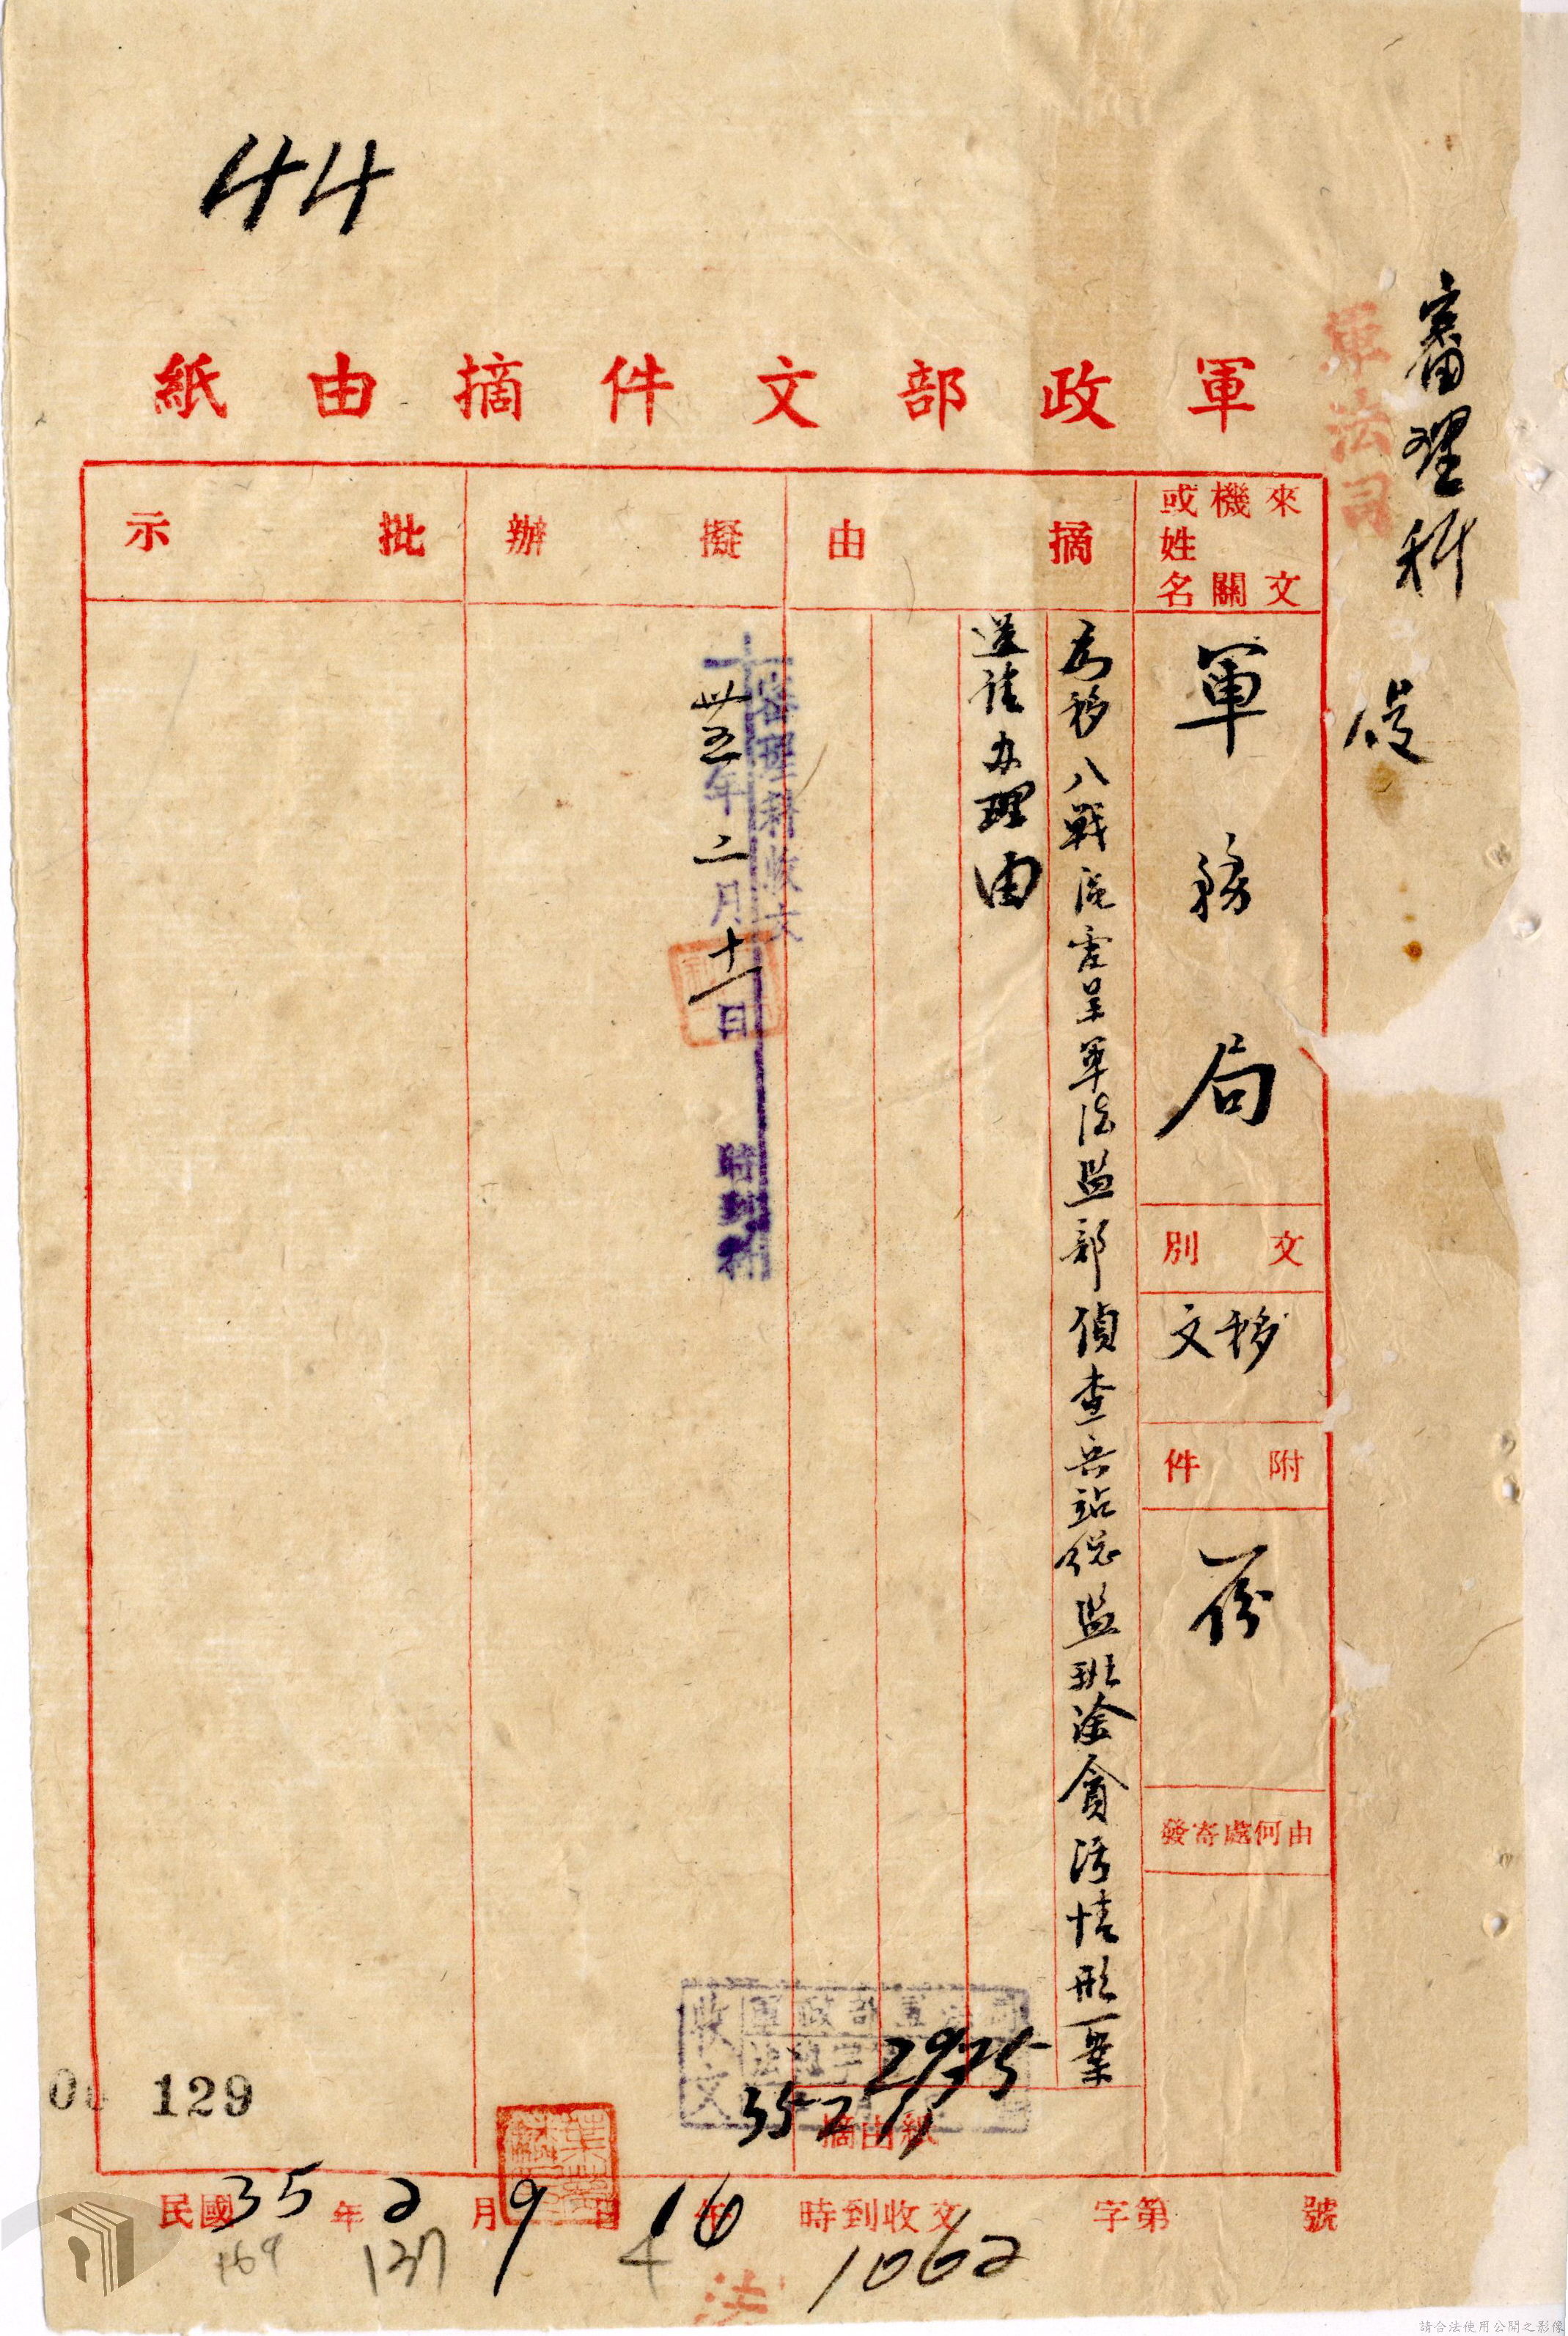 44
審理科
軍法司
軍政部文件摘由紙
來文機關或姓名
軍務局
文別
移文
附件
一份
由何處寄發
摘由
為移八戰區電呈軍法監部偵查兵站總監班淦貪污情形一案
送請办理由
擬辦
批示
審理科收文
卅五年二月十一日
時到科
收文
軍政部
2975
35 2 11
摘由紙
129
民國35年2月9日午16時到收文字第號
1062
169
137
4
法
請合法使用公開之影像